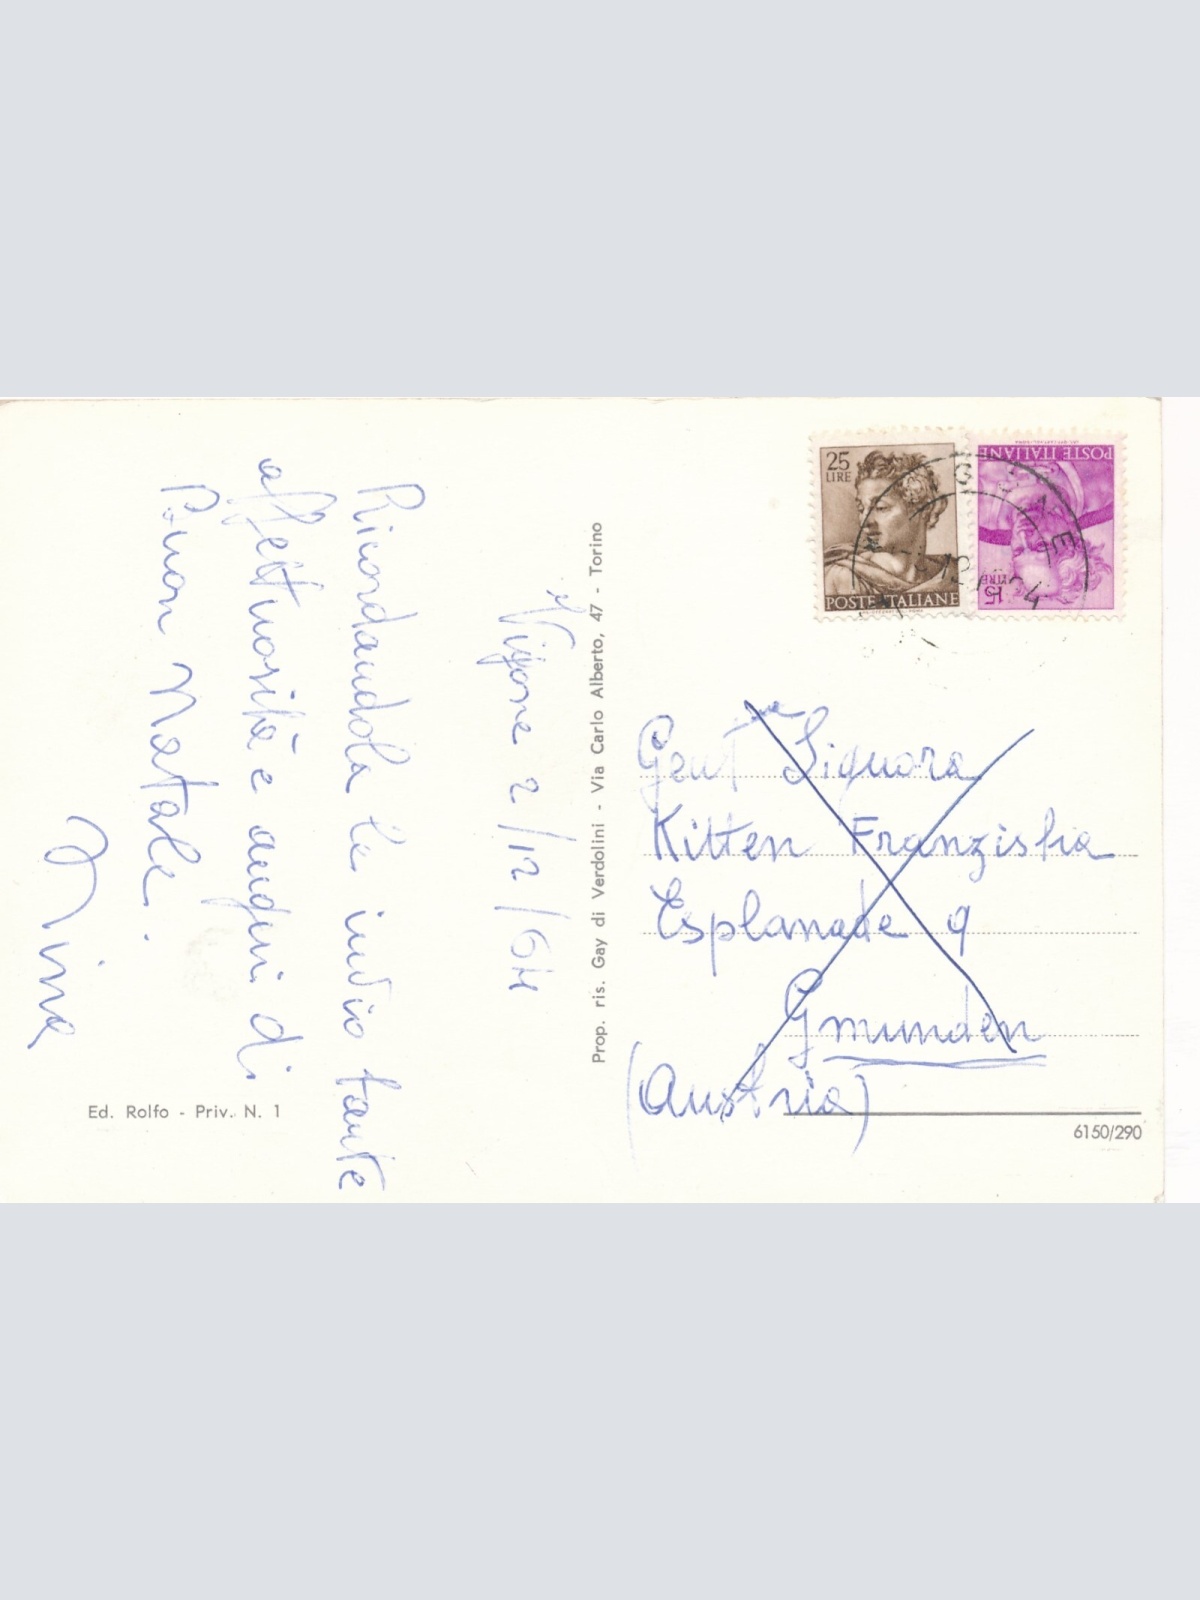 Vigone 2/12/64
Ricordandola Le invio tante
affettuosità e auguri di
Buon Natale.
Prop. ris. Gay di Verdolini - Via Carlo Alberto, 47 - Torino
Ed. Rolfo - Priv. N. 1
25
LIRE
POSTE ITALIANE
POSTE ITALIANE
15
LIRE
Gent.ma Signora
Kitten Franziska
Esplanade 9
Gmunden
(Austria)
6150/290